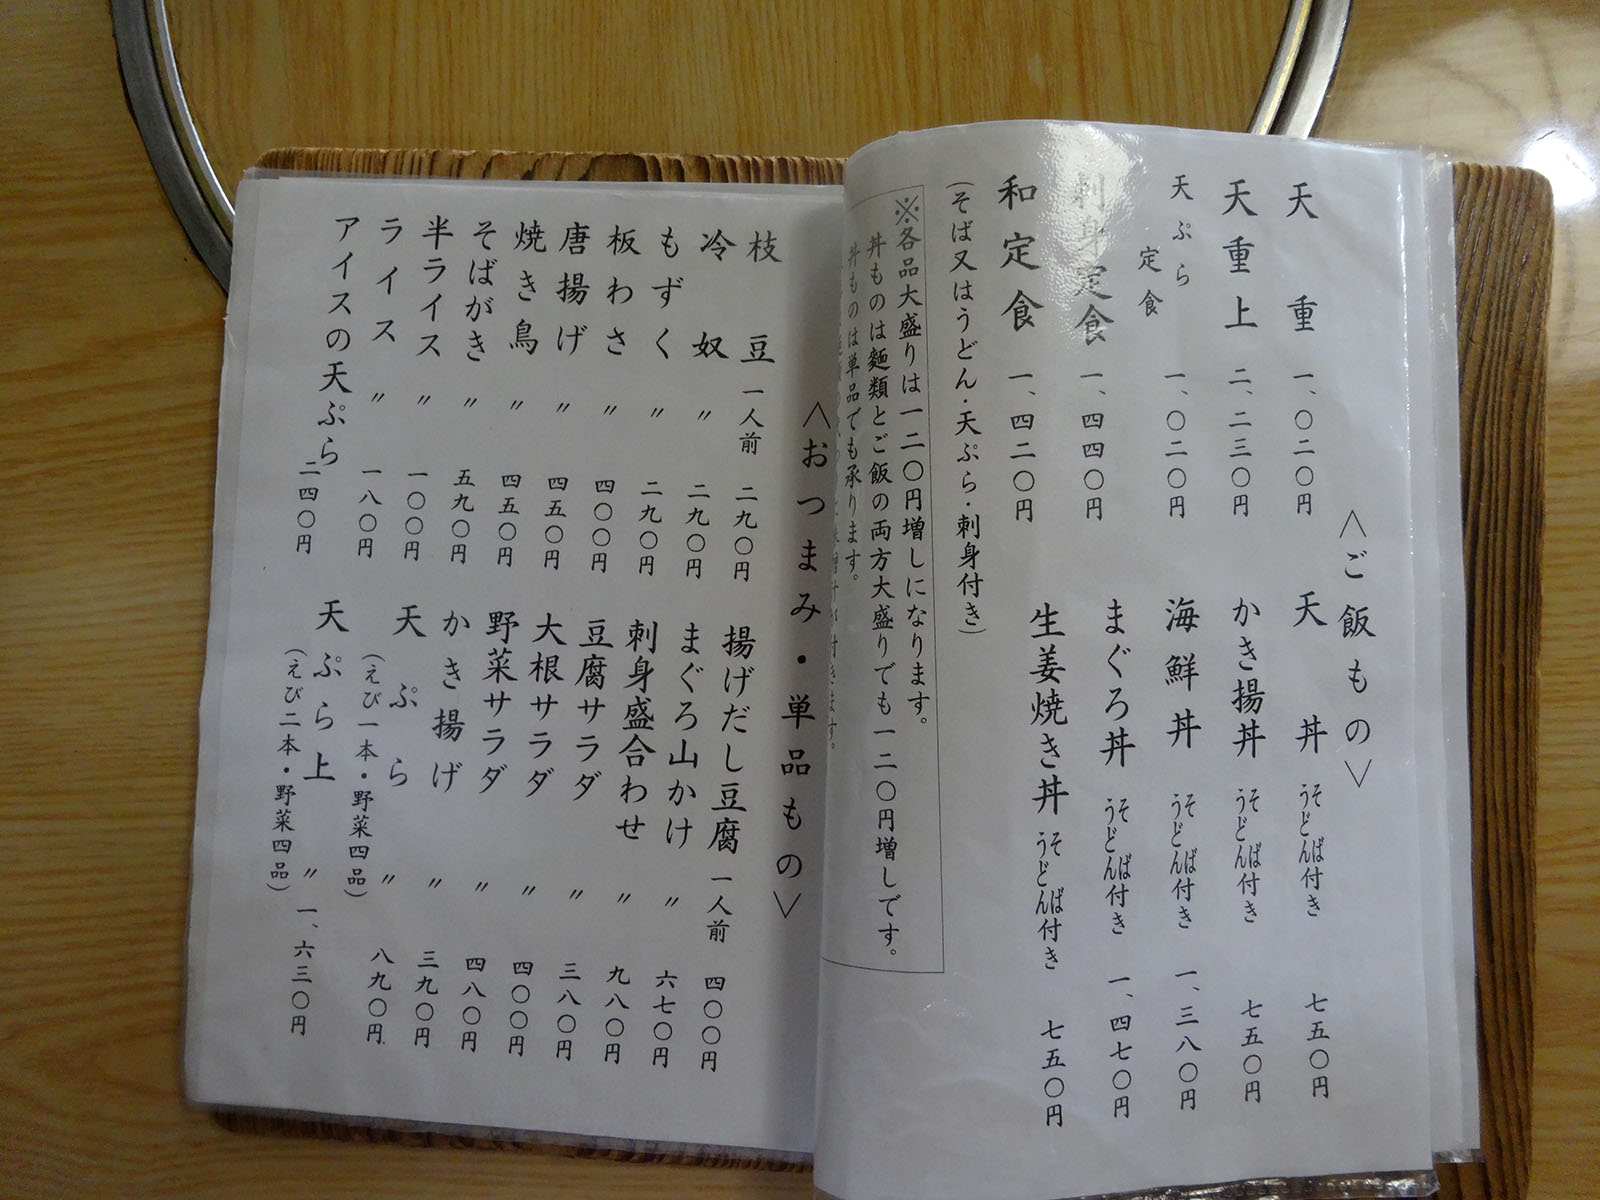 〈ご飯もの〉
天重 一、〇二〇円
天重上 二、二三〇円
天ぷら定食 一、〇二〇円
刺身定食 一、四四〇円
和定食 一、四二〇円
(そば又はうどん・天ぷら・刺身付き)
天丼 そばうどん付き 七五〇円
かき揚丼 そばうどん付き 七五〇円
海鮮丼 そばうどん付き 一、三八〇円
まぐろ丼 そばうどん付き 一、四七〇円
生姜焼き丼 そばうどん付き 七五〇円
※各品大盛りは一二〇円増しになります。
丼ものは麺類とご飯の両方大盛りでも一二〇円増しです。
丼ものは単品でも承ります。
〈おつまみ・単品もの〉
枝豆 一人前 二九〇円
冷奴 〃 二九〇円
もずく 〃 二九〇円
板わさ 〃 四〇〇円
唐揚げ 〃 四五〇円
焼き鳥 〃 四五〇円
そばがき 〃 五九〇円
半ライス 〃 一〇〇円
ライス 〃 一八〇円
アイスの天ぷら 二四〇円
揚げだし豆腐 一人前 四〇〇円
まぐろ山かけ 〃 六七〇円
刺身盛合わせ 〃 九八〇円
豆腐サラダ 〃 三八〇円
大根サラダ 〃 四〇〇円
野菜サラダ 〃 四八〇円
かき揚げ 〃 三九〇円
天ぷら 〃 八九〇円
(えび一本・野菜四品)
天ぷら上 〃 一、六三〇円
(えび二本・野菜四品)